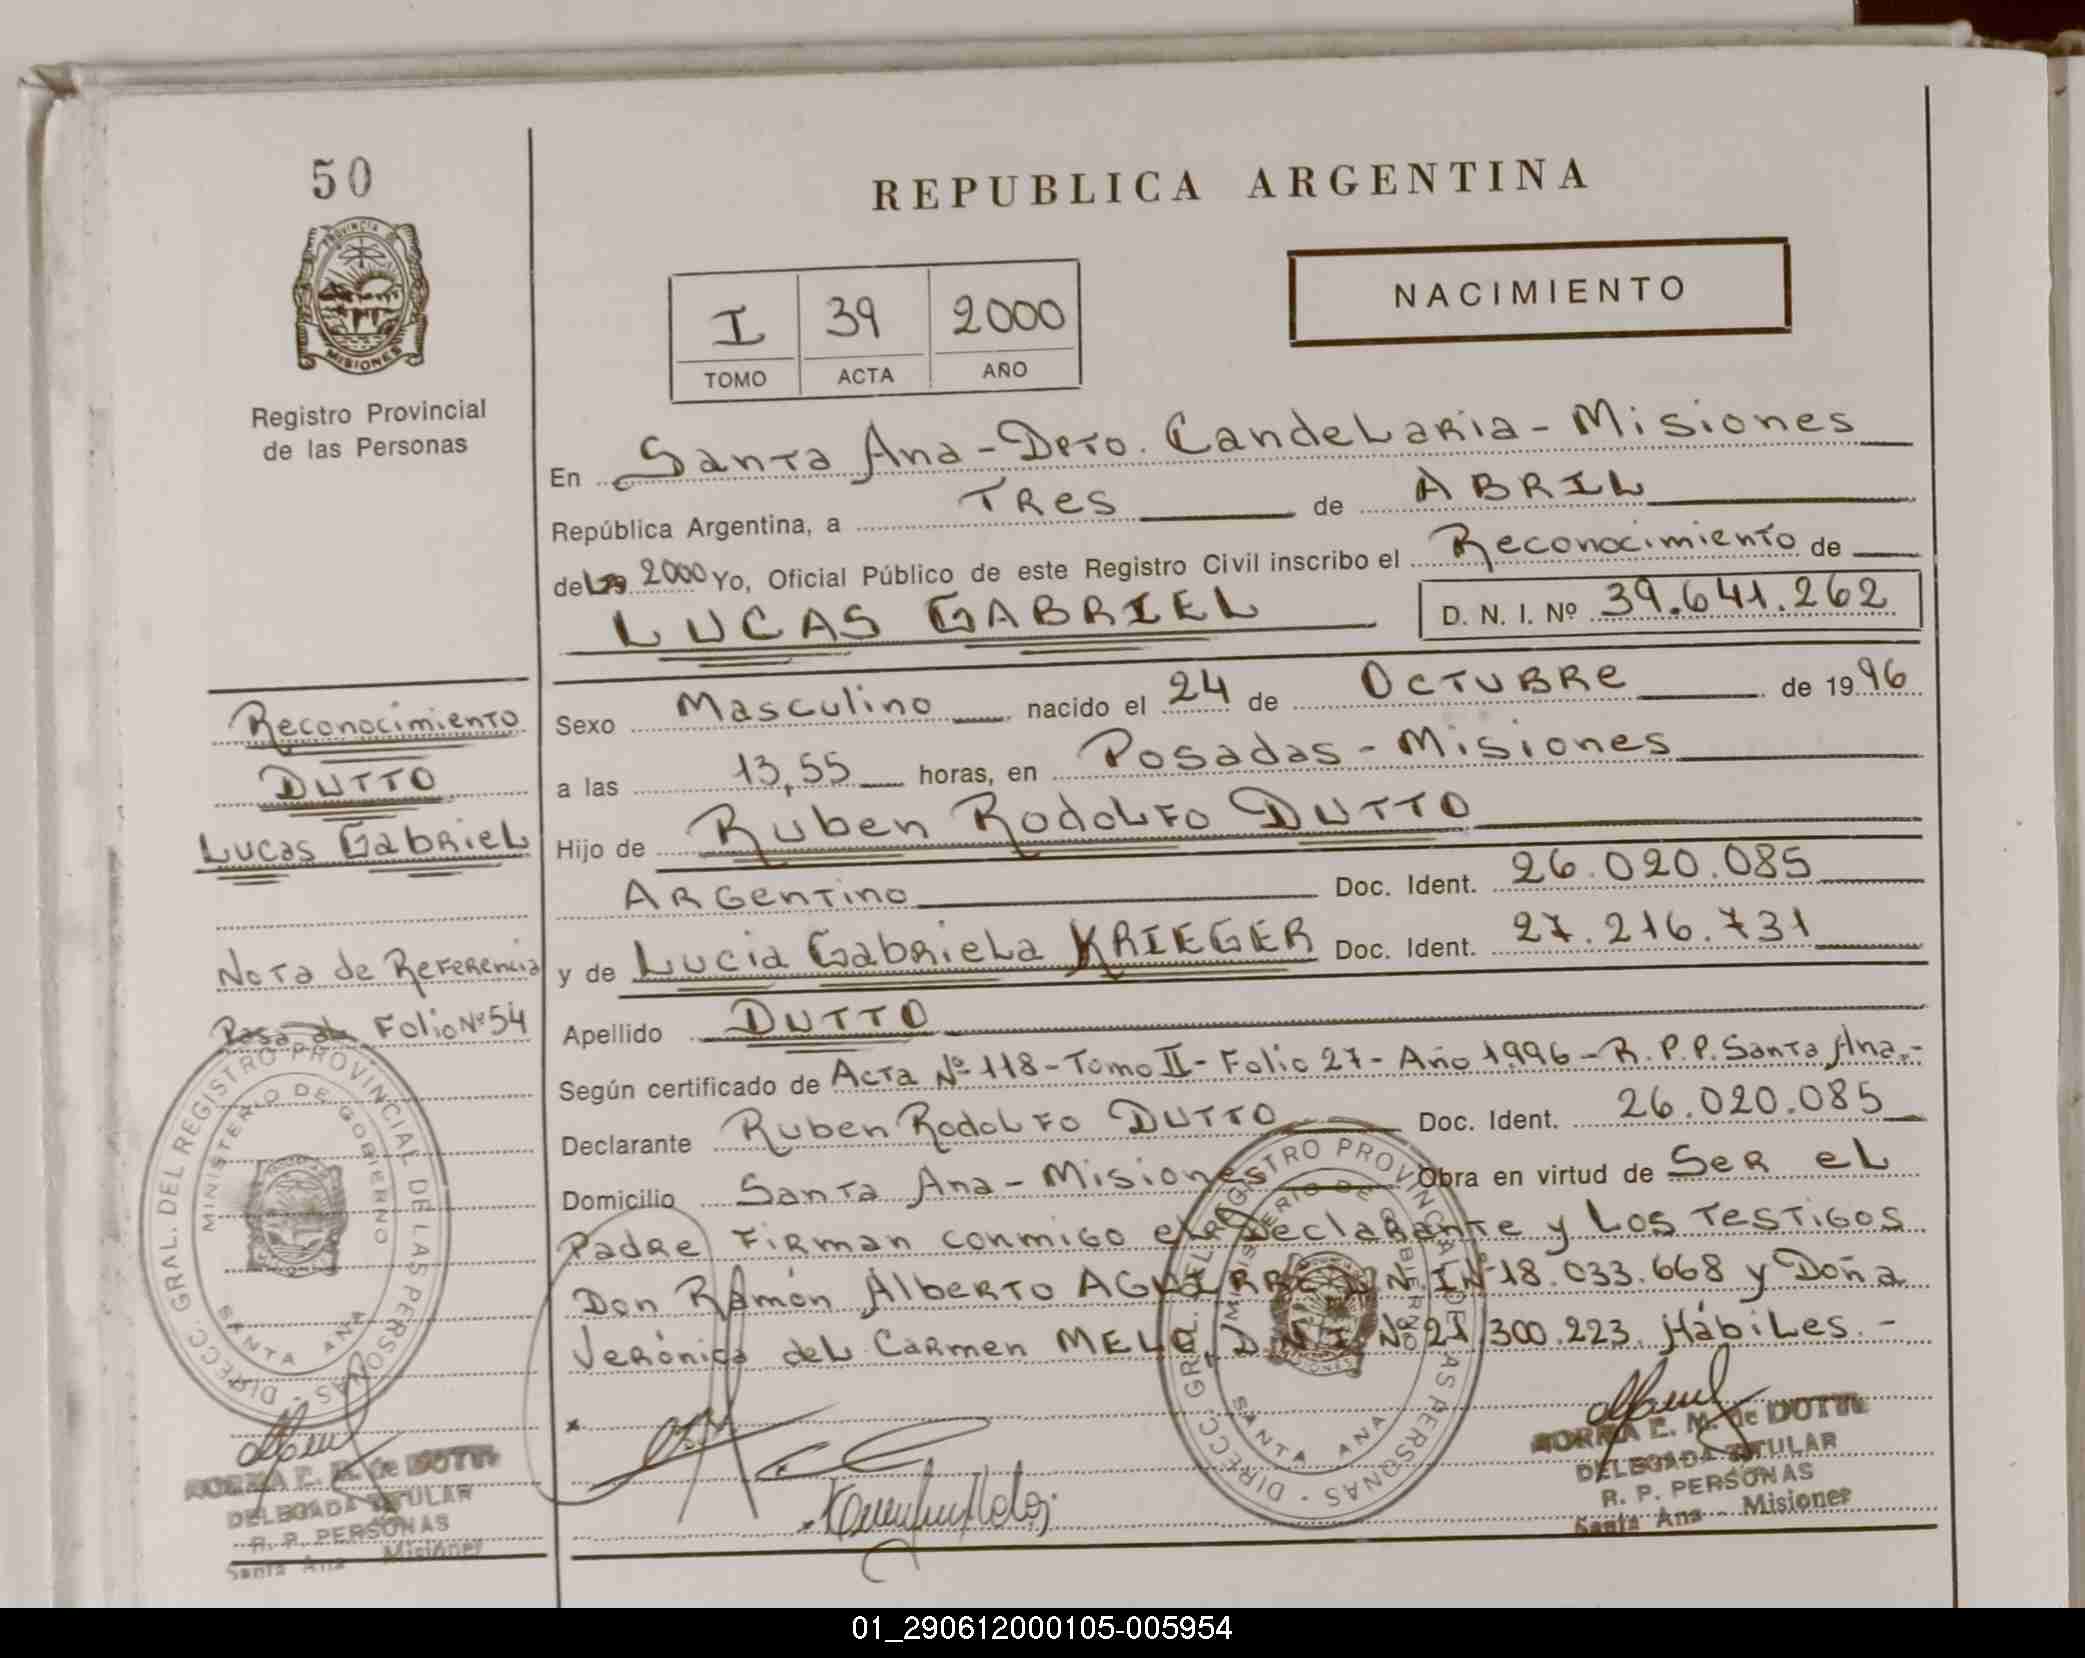 50
PROVINCIA DE
MISIONES
Registro Provincial
de las Personas
REPUBLICA ARGENTINA
NACIMIENTO
I 39 2000
TOMO ACTA AÑO
En Santa Ana - Dpto. Candelaria - Misiones
República Argentina, a Tres de ABRIL
del 2000 Yo, Oficial Público de este Registro Civil inscribo el Reconocimiento de
LUCAS GABRIEL D. N. I. Nº 39.641.262
Sexo Masculino nacido el 24 de Octubre de 1996
a las 13,55 horas, en Posadas - Misiones
Hijo de Ruben Rodolfo DUTTO
Argentino Doc. Ident. 26.020.085
y de Lucia Gabriela KRIEGER Doc. Ident. 27.216.731
Apellido DUTTO
Según certificado de Acta Nº 118 - Tomo II - Folio 27 - Año 1996 - R.P.P. Santa Ana.-
Declarante Ruben Rodolfo DUTTO Doc. Ident. 26.020.085
Domicilio Santa Ana - Misiones Obra en virtud de Ser el
Padre Firman conmigo el Declarante y Los Testigos
Don Ramón Alberto AGUIRRE D N I Nº 18.033.668 y Doña
Verónica del Carmen MELO, D N I Nº 21.300.223. Hábiles.-
Reconocimiento
DUTTO
Lucas Gabriel
Nota de Referencia
Pasa al Folio Nº 54
DIRECC. GRAL. DEL REGISTRO PROVINCIAL DE LAS PERSONAS
MINISTERIO DE GOBIERNO
SANTA ANA
DELEGADA TITULAR
R. P. PERSONAS
Santa Ana Misiones
DIRECC. GRAL. DEL REGISTRO PROVINCIAL DE LAS PERSONAS
MINISTERIO DE GOBIERNO
SANTA ANA
NORMA E. M. de
DELEGADA TITULAR
R. P. PERSONAS
Santa Ana - Misiones
01_290612000105-005954